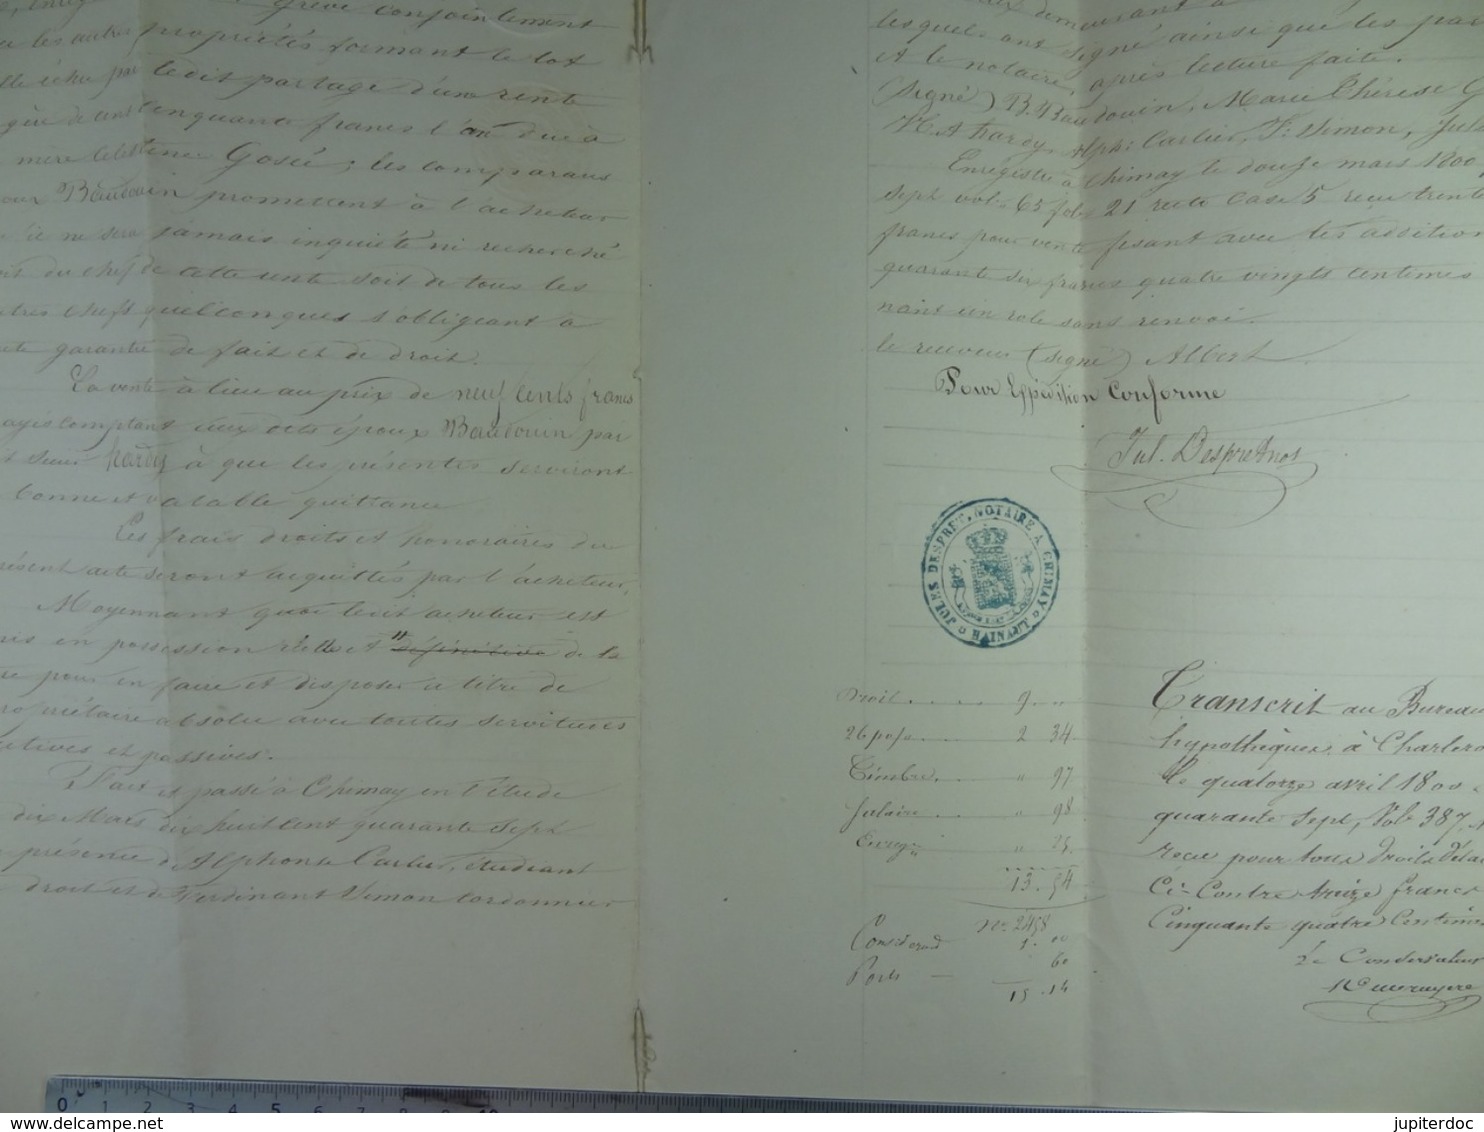 grevé conjointement
les autres propriétés formant le lot
échu par ledit partage d'une rente
de cent cinquante francs l'an due à
mère Célestine Gosée; les comparans
Baudouin promettent à l'acheteur
ne sera jamais inquiété ni recherché
du chef de cette rente soit de tous les
chefs quelconques s'obligeant à
garantie de fait et de droit.
La vente a lieu au prix de neuf cents francs
comptant aux dits époux Baudouin par
sieur hardy à que les présentes serviront
bonne et valable quittance
Les frais droits et honoraires du
présent acte seront acquittés par l'acheteur,
Moyennant quoi ledit acheteur est
en possession réelle et définitive de la
pour en faire et disposer à titre de
propriétaire absolu avec toutes servitudes
actives et passives.
Fait et passé à Chimay en l'étude
dix Mars dix huit cent quarante sept
présence de Alphonse Carlier, étudiant
droit et de Ferdinant Simon cordonnier
demeurant à
lesquels ont signé ainsi que les par
et le notaire, après lecture faite.
(Signé) B. Baudouin, Marie Thérèse G
H A hardy, Alph: Carlier, F: Simon, Jul
Enregistré à Chimay le douze mars 1800
sept vol. 65 folo 21 recto Case 5 reçu trente
francs pour vente fesant avec les addition
quarante six francs quatre vingts centimes
nant un role sans renvoi.
le receveur (signé) Albert
Pour Expédition Conforme
Jul. Despret Not
JULES DESPRET, NOTAIRE A CHIMAY
HAINAUT
Droit 9 "
26 p% 2 34
Timbre " 97
Salaire " 98
Enregt " 25
13.54
No 2498
1. 00
60
Ports
15.14
Transcrit au Bureau
hypothèques à Charlero
le quatorze avril 1800
quarante sept, Vol. 387, N
reçu pour tous droits détai
Ci-Contre treize francs
Cinquante quatre Centimes
Le Conservateur
0 1 2 3 4 5 6 7 8 9 10
jupiterdoc